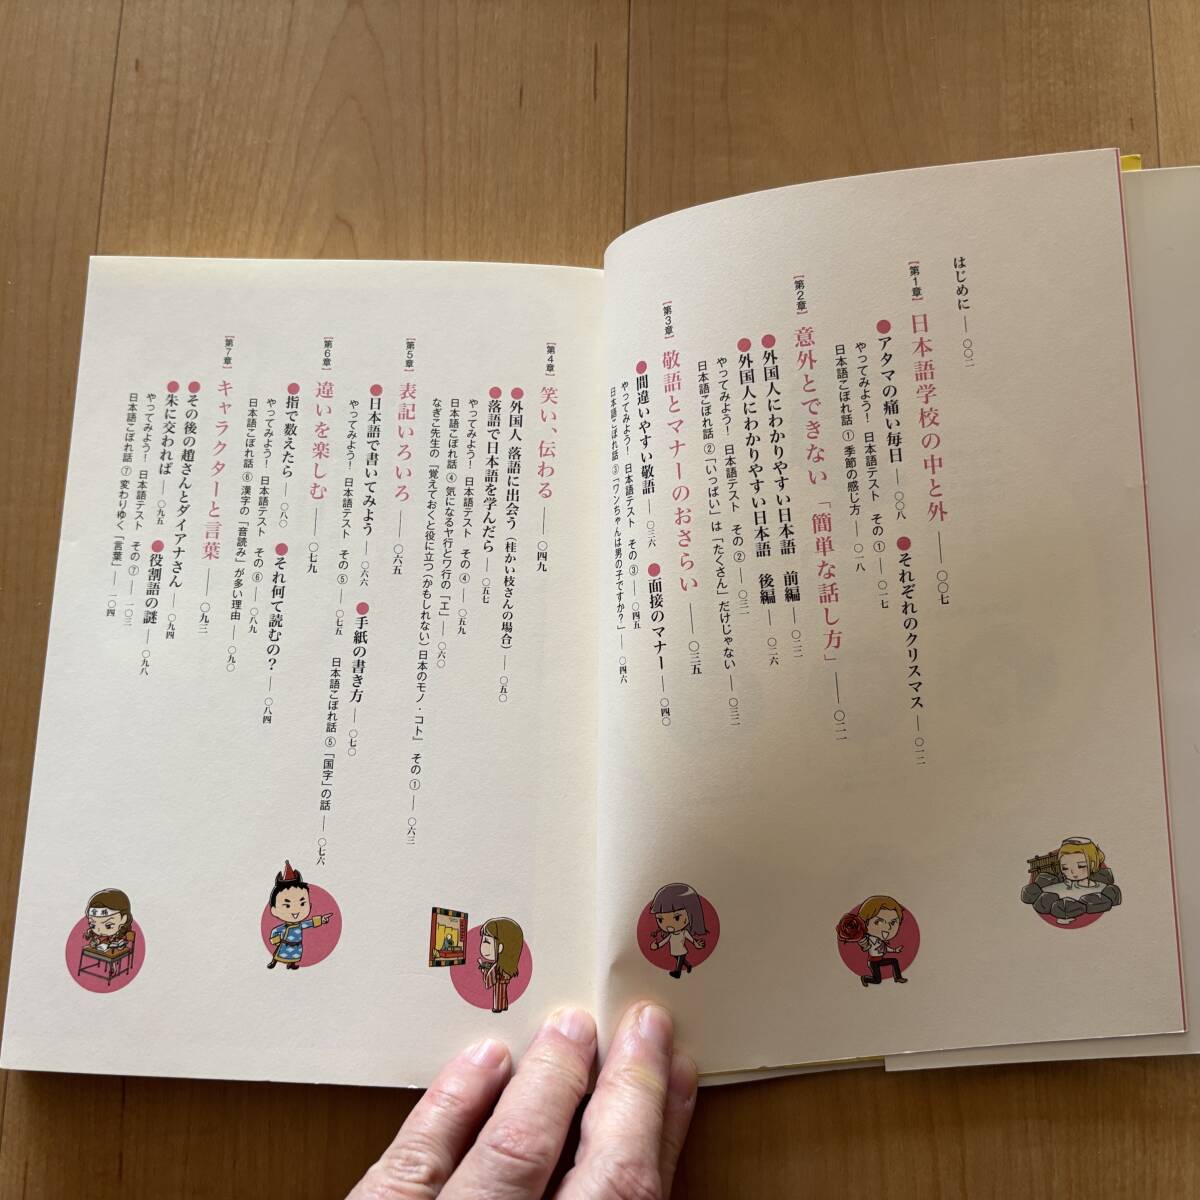 はじめに ── 〇〇二
［第1章］ 日本語学校の中と外 ── 〇〇七
●アタマの痛い毎日 ── 〇〇八 ●それぞれのクリスマス ── 〇一二
やってみよう! 日本語テスト その① ── 〇一七
日本語こぼれ話 ① 季節の感じ方 ── 〇一八
［第2章］ 意外とできない「簡単な話し方」 ── 〇二一
●外国人にわかりやすい日本語 前編 ── 〇二二
●外国人にわかりやすい日本語 後編 ── 〇二六
やってみよう! 日本語テスト その② ── 〇三一
日本語こぼれ話 ②「いっぱい」は「たくさん」だけじゃない ── 〇三二
［第3章］ 敬語とマナーのおさらい ── 〇三五
●間違いやすい敬語 ── 〇三六 ●面接のマナー ── 〇四〇
やってみよう! 日本語テスト その③ ── 〇四五
日本語こぼれ話 ③「ワンちゃんは男の子ですか?」 ── 〇四六
［第4章］ 笑い、伝わる ── 〇四九
●外国人 落語に出会う（桂かい枝さんの場合） ── 〇五〇
●落語で日本語を学んだら ── 〇五七
やってみよう! 日本語テスト その④ ── 〇五九
日本語こぼれ話 ④ 気になるヤ行とワ行の「エ」 ── 〇六〇
なぎこ先生の「覚えておくと役に立つ（かもしれない）日本のモノ・コト」 その① ── 〇六三
［第5章］ 表記いろいろ ── 〇六五
●日本語で書いてみよう ── 〇六六 ●手紙の書き方 ── 〇七〇
やってみよう! 日本語テスト その⑤ ── 〇七五
日本語こぼれ話 ⑤「国字」の話 ── 〇七六
［第6章］ 違いを楽しむ ── 〇七九
●指で数えたら ── 〇八〇 ●それ何て読むの? ── 〇八四
やってみよう! 日本語テスト その⑥ ── 〇八九
日本語こぼれ話 ⑥ 漢字の「音読み」が多い理由 ── 〇九〇
［第7章］ キャラクターと言葉 ── 〇九三
●その後の趙さんとダイアナさん ── 〇九四
●朱に交われば ── 〇九五 ●役割語の謎 ── 〇九八
やってみよう! 日本語テスト その⑦ ── 一〇三
日本語こぼれ話 ⑦ 変わりゆく「言葉」 ── 一〇四